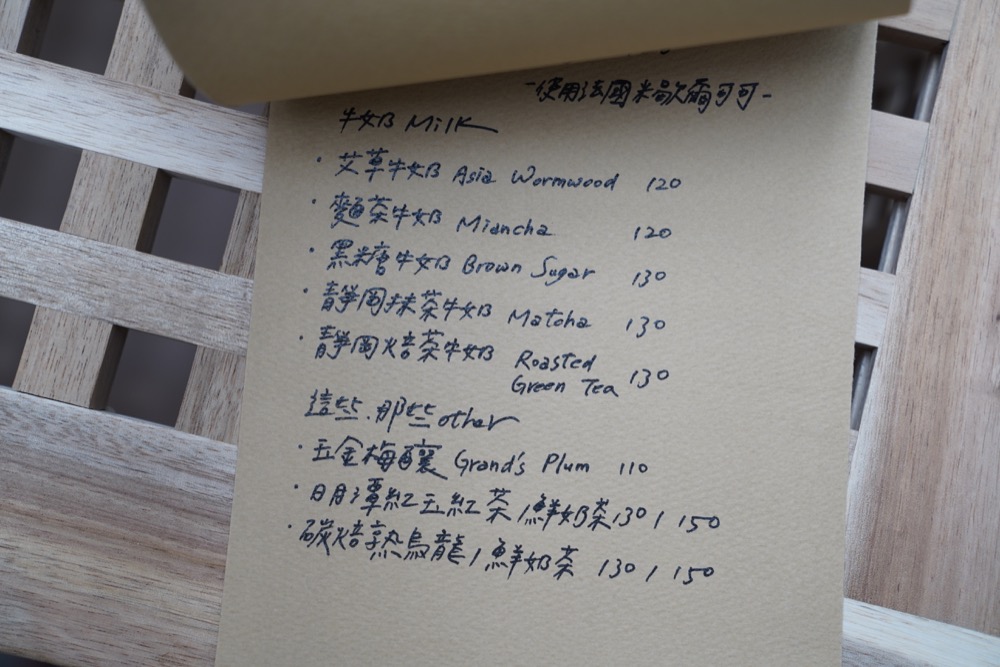 -使用法國米歇爾可可-
牛奶 Milk
· 艾草牛奶 Asia Wormwood 120
· 麵茶牛奶 Miancha 120
· 黑糖牛奶 Brown Sugar 130
· 靜岡抹茶牛奶 Matcha 130
· 靜岡焙茶牛奶 Roasted Green Tea 130
這些.那些 other
· 五金梅釀 Grand's Plum 110
· 日月潭紅玉紅茶/鮮奶茶 130/150
· 碳焙熟烏龍/鮮奶茶 130/150